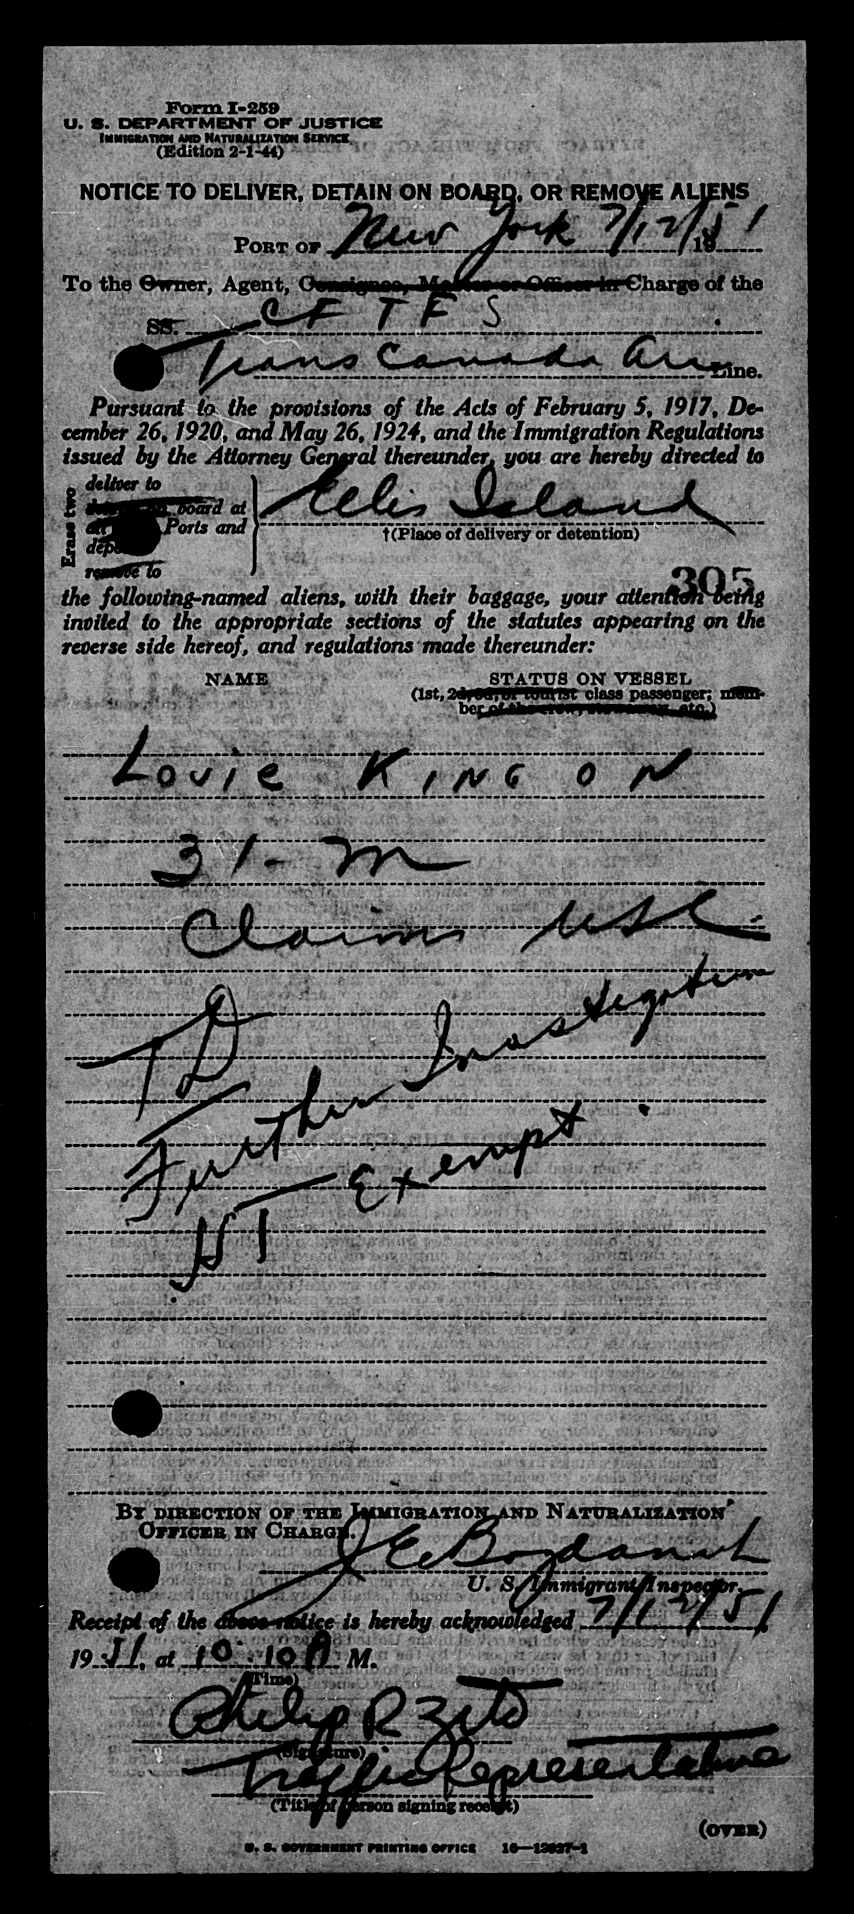 Form I-259
U. S. DEPARTMENT OF JUSTICE
IMMIGRATION AND NATURALIZATION SERVICE
(Edition 2-1-44)
NOTICE TO DELIVER, DETAIN ON BOARD, OR REMOVE ALIENS
PORT OF New York 7/12/51 19
To the Owner, Agent, Consignee, Master or Officer in Charge of the
SS. CF TFS
Trans Canada Air Line.
Pursuant to the provisions of the Acts of February 5, 1917, De-
cember 26, 1920, and May 26, 1924, and the Immigration Regulations
issued by the Attorney General thereunder, you are hereby directed to
Erase two
deliver to
board at
Ports and
remove to
Ellis Island
†(Place of delivery or detention)
305
the following-named aliens, with their baggage, your attention being
invited to the appropriate sections of the statutes appearing on the
reverse side hereof, and regulations made thereunder:
NAME STATUS ON VESSEL
(1st, 2d, 3d, or tourist class passenger; mem-
ber of the crew, stowaway, etc.)
Lovie KINGON
31-M
Claims USC
TD
Further Investigation
HT Exempt.
BY DIRECTION OF THE IMMIGRATION AND NATURALIZATION
OFFICER IN CHARGE.
U. S. Immigrant Inspector.
Receipt of the above notice is hereby acknowledged 7/12/51.
19 51, at 10:10 A M.
(Time)
Philip R Zito
(Signature)
Traffic Representative
(Title of person signing receipt)
(OVER)
U. S. GOVERNMENT PRINTING OFFICE 16—13927-1